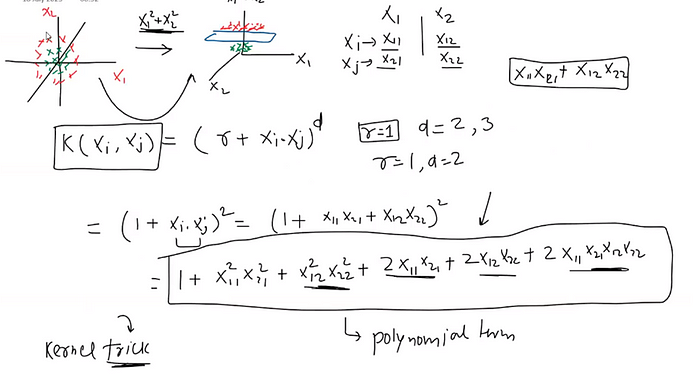 X₂
X₁
X₁²+X₂²
X₁
X₂
X₁ X₂
Xi → X₁₁ | X₁₂
Xj → X₂₁ | X₂₂
X₁₁X₂₁ + X₁₂X₂₂
K(Xi, Xj) = (r + Xi.Xj)^d
r=1 d=2,3
r=1, d=2
= (1 + Xi.Xj)² = (1 + X₁₁X₂₁ + X₁₂X₂₂)²
= 1 + X₁₁²X₂₁² + X₁₂²X₂₂² + 2X₁₁X₂₁ + 2X₁₂X₂₂ + 2X₁₁X₂₁X₁₂X₂₂
↳ polynomial term
Kernel trick